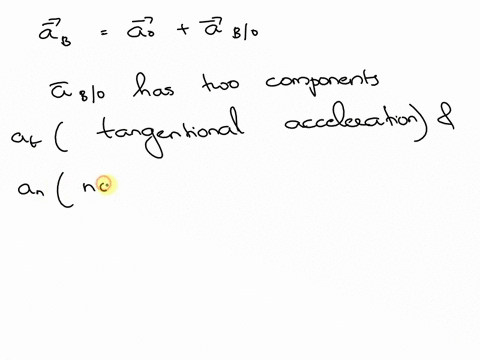 a⃗_B = a⃗_0 + a⃗_B/0
a̅_B/0 has two components
a_t ( tangentional acceleration) &
a_n ( no